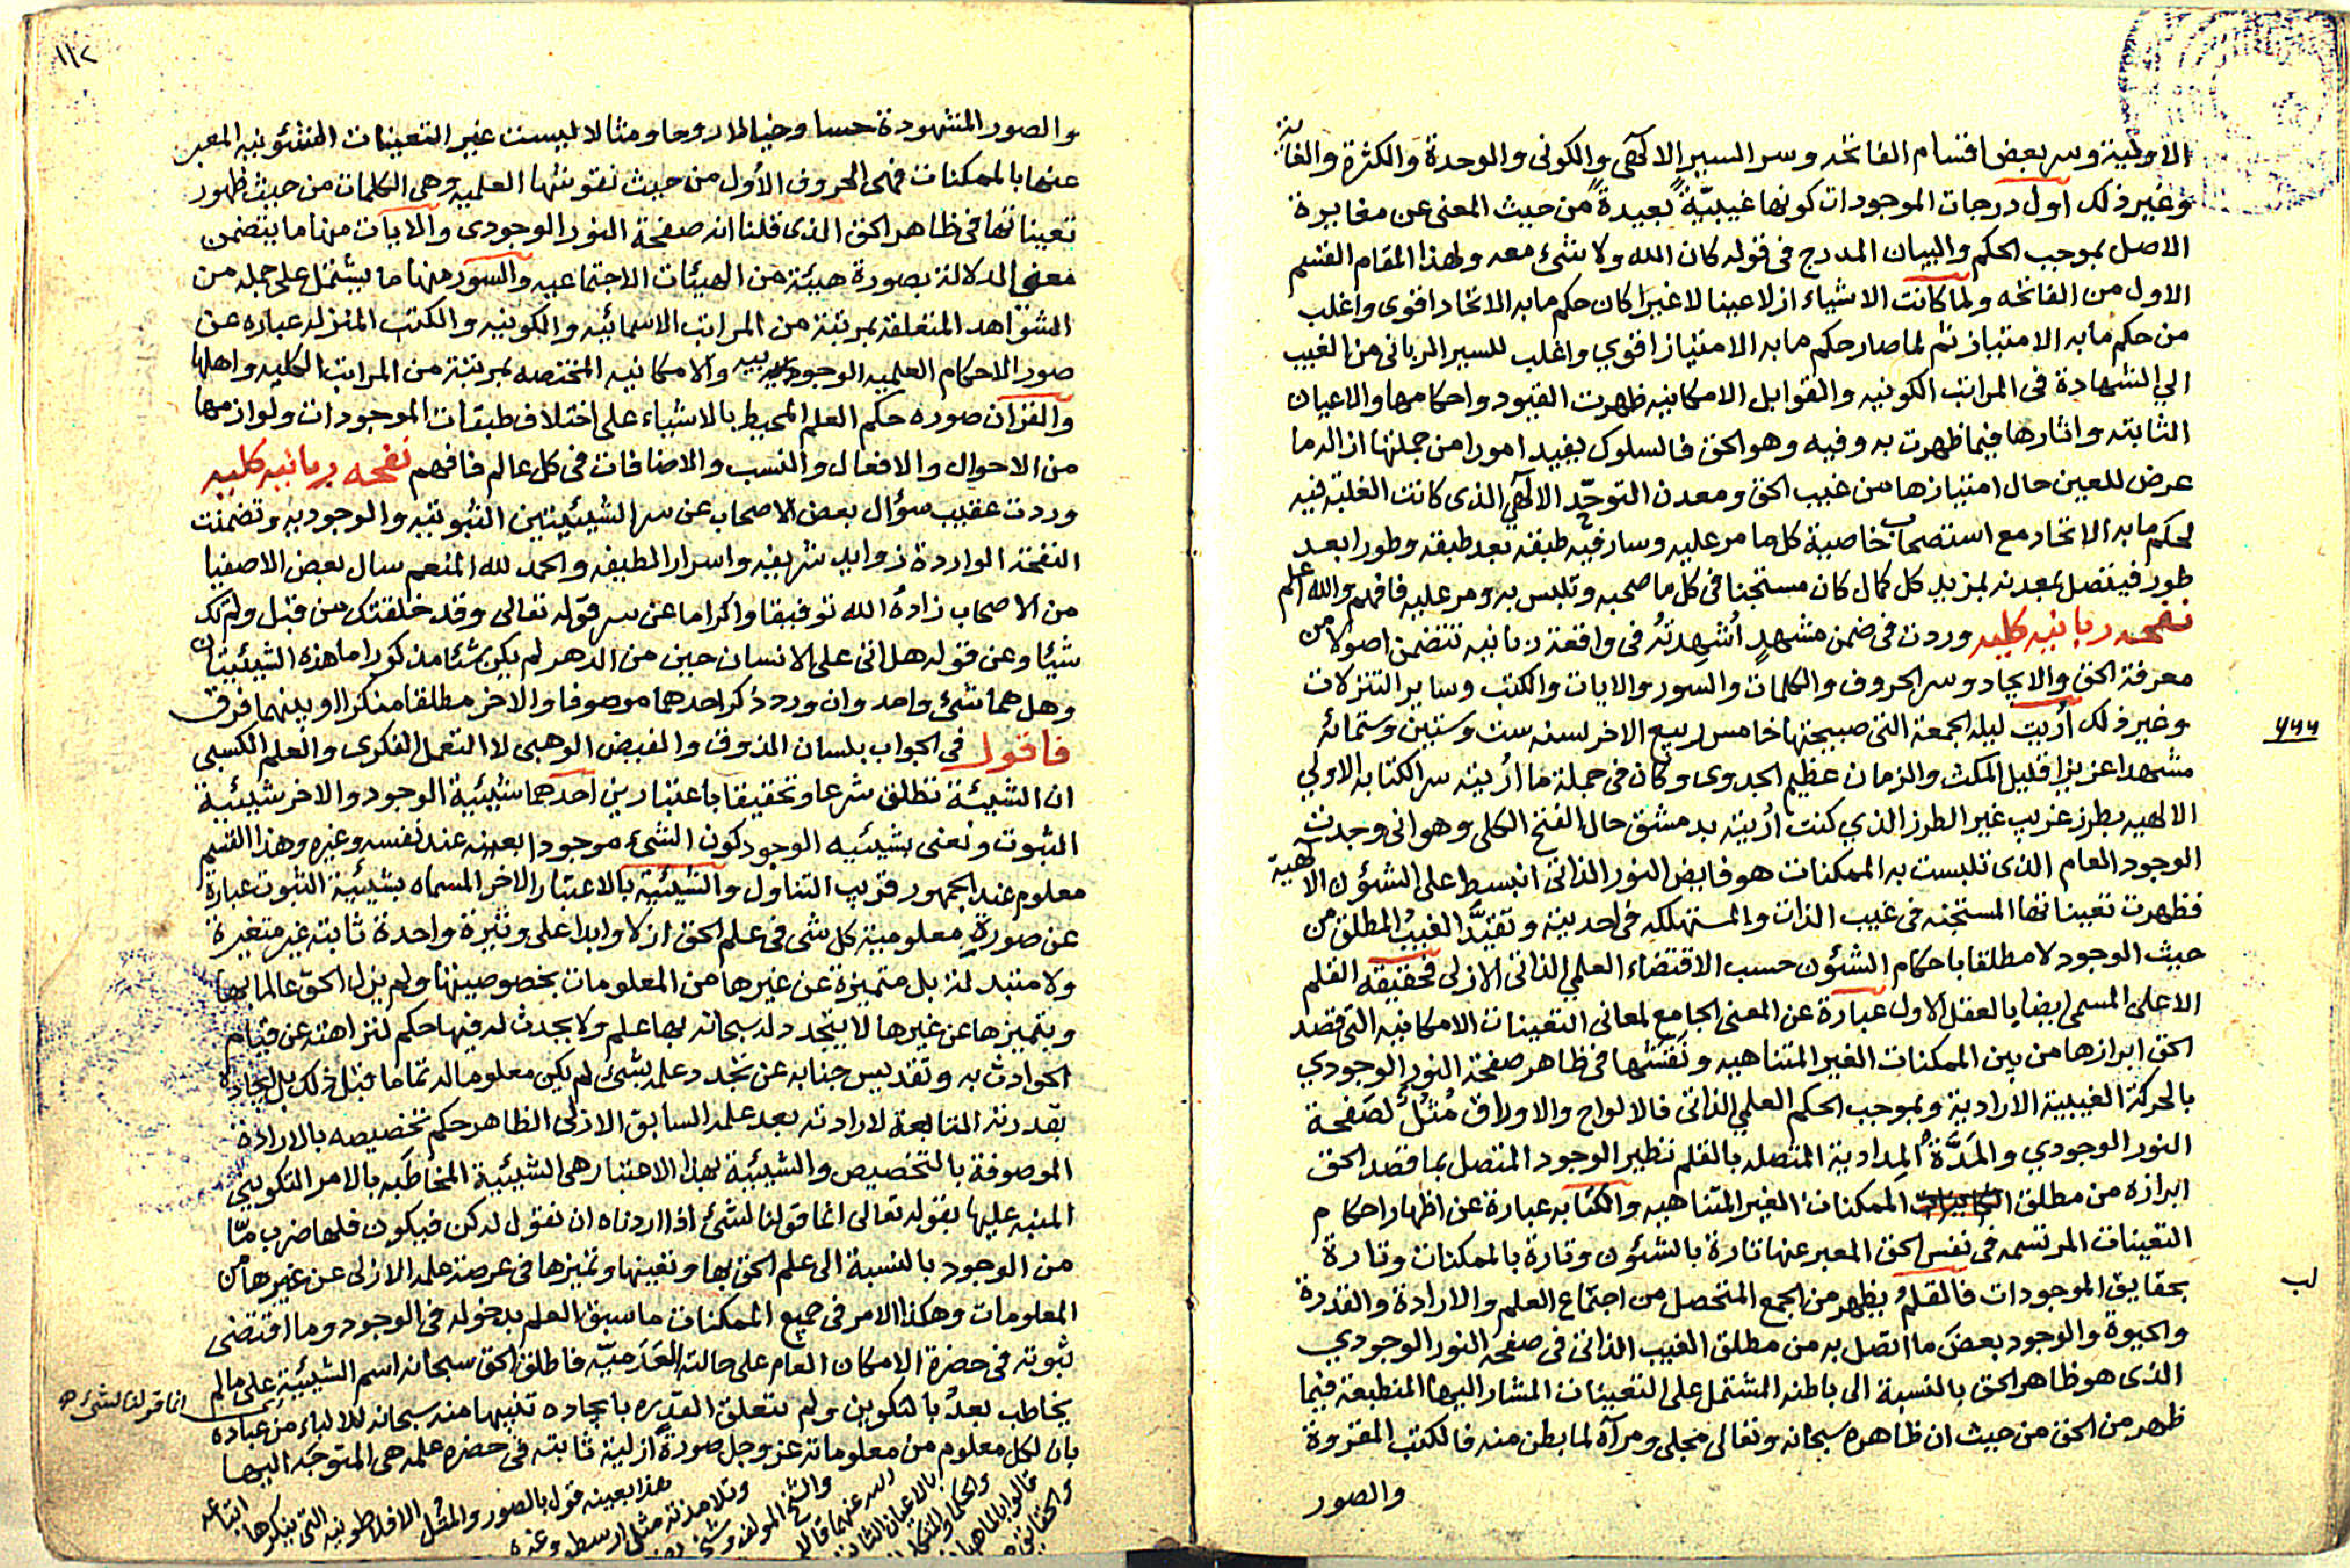 الاولية وسر بعض اقسام الفاتحه وسر السير الالهى والكونى والوحدة والكثرة والغاية
وغير ذلك اول درجات الموجودات كونها غيبيّة بعيدة من حيث المعنى عن مغايرة
الاصل بموجب الحكم والبيان المدرج فى قوله كان الله ولا شئ معه ولهذا المقام القسم
الاول من الفاتحه ولما كانت الاشياء ازلا عينا لا غيرا كان حكم ما به الاتحاد اقوى واغلب
من حكم ما به الامتياز ثم لما صار حكم ما به الامتياز اقوي واغلب للسير الربانى من الغيب
الي الشهادة فى المراتب الكونيه والقوابل الامكانيه ظهرت القيود واحكامها والاعيان
الثابته واثارها فيما ظهرت به وفيه وهو الحق فالسلوك يفيد امورا من جملتها ازالة ما
عرض للعين حال امتيازها من غيب الحق ومعدن التوحّد الالهي الذى كانت الغلبة فيه
لحكم ما به الاتحاد مع استصحاب خاصية كل ما مر عليه وسار فيه طبقه بعد طبقه وطورا بعد
طور فيتصل بمعدنه بمزيد كل كمال كان مستجنا فى كل ما صحبه وتلبس به ومر عليه فافهم والله اعلم
نفحه ربانيه كليه وردت فى ضمن مشهدٍ اُشهدتُه فى واقعة ربانيه تتضمن اصولا من
معرفة الحق والايجاد وسر الحروف والكلمات والسور والايات والكتب وساير التنزلات
وغير ذلك اُريت ليله الجمعة التى صبيحتها خامس ربيع الاخر لسنه ست وستين وستمائه
٦٦٦
مشهدا عزيزا قليل المكث والزمان عظيم الجدوى وكان فى جملة ما اُريته سر الكتابه الاولي
الالهيه بطرز غريب غير الطرز الذي كنت اُريته بدمشق حال الفتح الكلى وهو انى وجدت
الوجود العام الذى تلبست به الممكنات هو فايض النور الذاتى انبسط على الشؤن الالهية
فظهرت تعيناتها المستجنه فى غيب الذات والمستهلكه فى احديته وتقيَّد الغيبُ المطلق من
حيث الوجود لا مطلقا باحكام الشؤن حسب الاقتضاء العلمي الذاتى الازلى فحقيقه القلم
الاعلى المسمى ايضا بالعقل الاول عبارة عن المعنى الجامع لمعانى التعينات الامكانيه التى قصد
الحق ابرازها من بين الممكنات الغير المتناهيه ونقشها فى ظاهر صفحة النور الوجودي
بالحركة الغيبية الارادية وبموجب الحكم العلمي الذاتى فالالواح والاوراق مُثُلٌ لصَفحة
النور الوجودي والمَدَّةُ المدادية المتصله بالقلم نظير الوجود المتصل بما قصد الحق
ابرازه من مطلق الممكنات الغير المتناهيه والكتابه عبارة عن اظهار احكام
التعينات المرتسمه فى نفس الحق المعبر عنها تارة بالشؤن وتارة بالممكنات وتارة
بحقايق الموجودات فالقلمُ يظهر من الجمع المتحصل من اجتماع العلم والارادة والقدرة
لب
والحيوة والوجود بعضَ ما اتصل به من مطلق الغيب الذاتى فى صفحه النور الوجودي
الذى هو ظاهر الحق بالنسبة الى باطنه المشتمل على التعينات المشار اليها المنطبعة فيما
ظهر من الحق من حيث ان ظاهره سبحانه وتعالى مجلى ومرآة لما بطن منه فالكتب المقروة
والصور
١١٢
والصور المشهودة حسا وخيالا وروحا ومثالا ليست غير التعينات الشئونيه المعبر
عنها بالممكنات فهى الحروف الأول من حيث نقوشها العلميه وهى الكلمات من حيث ظهور
تعيناتها فى ظاهر الحق الذى قلنا انه صفحة النور الوجودى والايات منها ما يتضمن
معنى الدلالة بصورة هيئة من الهيئات الاجتماعيه والسور منها ما يشتمل على جمله من
الشواهد المتعلقة بمرتبة من المراتب الاسمائيه والكونيه والكتب المنزله عباره عن
صور الاحكام العلميه الوجوديه والامكانيه المختصه بمرتبة من المراتب الكليه واهلها
والقران صوره حكم العلم المحيط بالاشياء على اختلاف طبقات الموجودات ولوازمها
من الاحوال والافعال والنسب والاضافات فى كل عالم فافهم نفحه ربانيه كليه
وردت عقيب سؤال بعض الاصحاب عن سر الشيئيتين الثبوتيه والوجوديه وتضمنت
النفحة الواردة زوايد شريفه واسرار لطيفه والحمد لله المنعم سال بعض الاصفيا
من الاصحاب زادهُ الله توفيقا واكراما عن سر قوله تعالى وقد خلقتك من قبل ولم تك
شيئا وعن قوله هل اتى على الانسان حين من الدهر لم يكن شئا مذكورا ما هذه الشيئيتان
وهل هما شئ واحد وان ورد ذكر احدهما موصوفا والاخر مطلقا منكرا او بينهما فرق
فاقول فى الجواب بلسان الذوق والفيض الوهبى لا التعمل الفكرى والعلم الكسبى
ان الشيئة تطلق شرعا وتحقيقا باعتبارين احدهما شيئية الوجود والاخر شيئية
الثبوت ونعنى بشيئيه الوجود كون الشئ موجودا بعينه عند نفسه وغيره وهذا القسم
معلوم عند الجمهور قريب التناول والشيئية بالاعتبار الاخر المسماه بشيئية الثبوت عبارة
عن صورة معلومية كل شى فى علم الحق ازلا وابدا على وتيرة واحدة ثابته غير متغيرة
ولا متبدلة بل متميزة عن غيرها من المعلومات بخصوصيتها ولم يزل الحق عالما بها
وبتميزها عن غيرها لا يتجدد له سبحانه بها علم ولا يحدث له فيها حكم لنزاهته عن قيام
الحوادث به وتقديس جنابه عن تجدد علمه بشئ لم يكن معلوما له تماما قبل ذلك بل ايجاده
بقدرته التابعة لارادته بعد علمه السابق الازلى الظاهر حكم تخصيصه بالارادة
الموصوفة بالتخصيص والشيئية بهذا الاعتبار هى الشيئية المخاطبه بالامر التكوينى
المنبه عليها بقوله تعالى انما قولنا لشئ اذا اردناه ان نقول له كن فيكون فلها ضرب مّا
من الوجود بالنسبة الى علم الحق بها وتعينها وتميزها فى عرصة علمه الازلى عن غيرها من
المعلومات وهكذا الامر فى جميع الممكنات ما سبق العلم بدخوله فى الوجود وما اقتضى
ثبوته فى حضرة الامكان العام على حالته العَدَميّه فاطلق الحق سبحانه اسم الشيئية على ما لم
انما قولنا لشئ
يخاطب بعدُ بالتكوين ولم تتعلق القدره بايجاده تنبيها منه سبحانه للالباء من عباده
بان لكل معلوم من معلوماته عز وجل صورةً ازلية ثابته فى حضره علمه هى المتوجَه اليها
هذا بعينه قول بالصور والمثل الافلاطونيه التى ينكرها
وتلامذته مثل ارسطو وغيره
والشيخ المولف
بالاعيان
قالوا بالماهيات
والحقايق